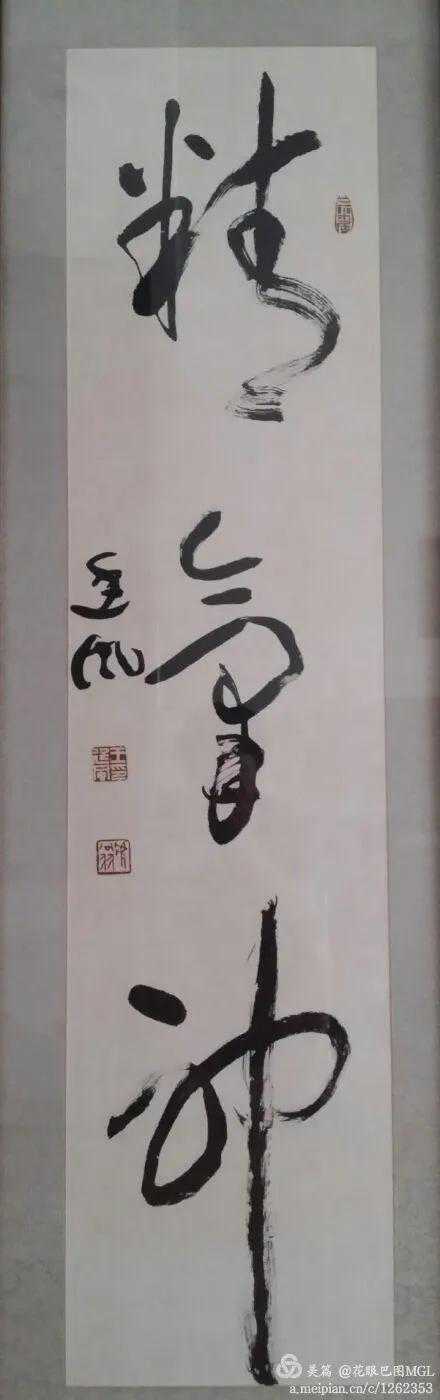 精
氣
神
美篇 @花眼巴图MGL
a.meipian.cn/c/1262353